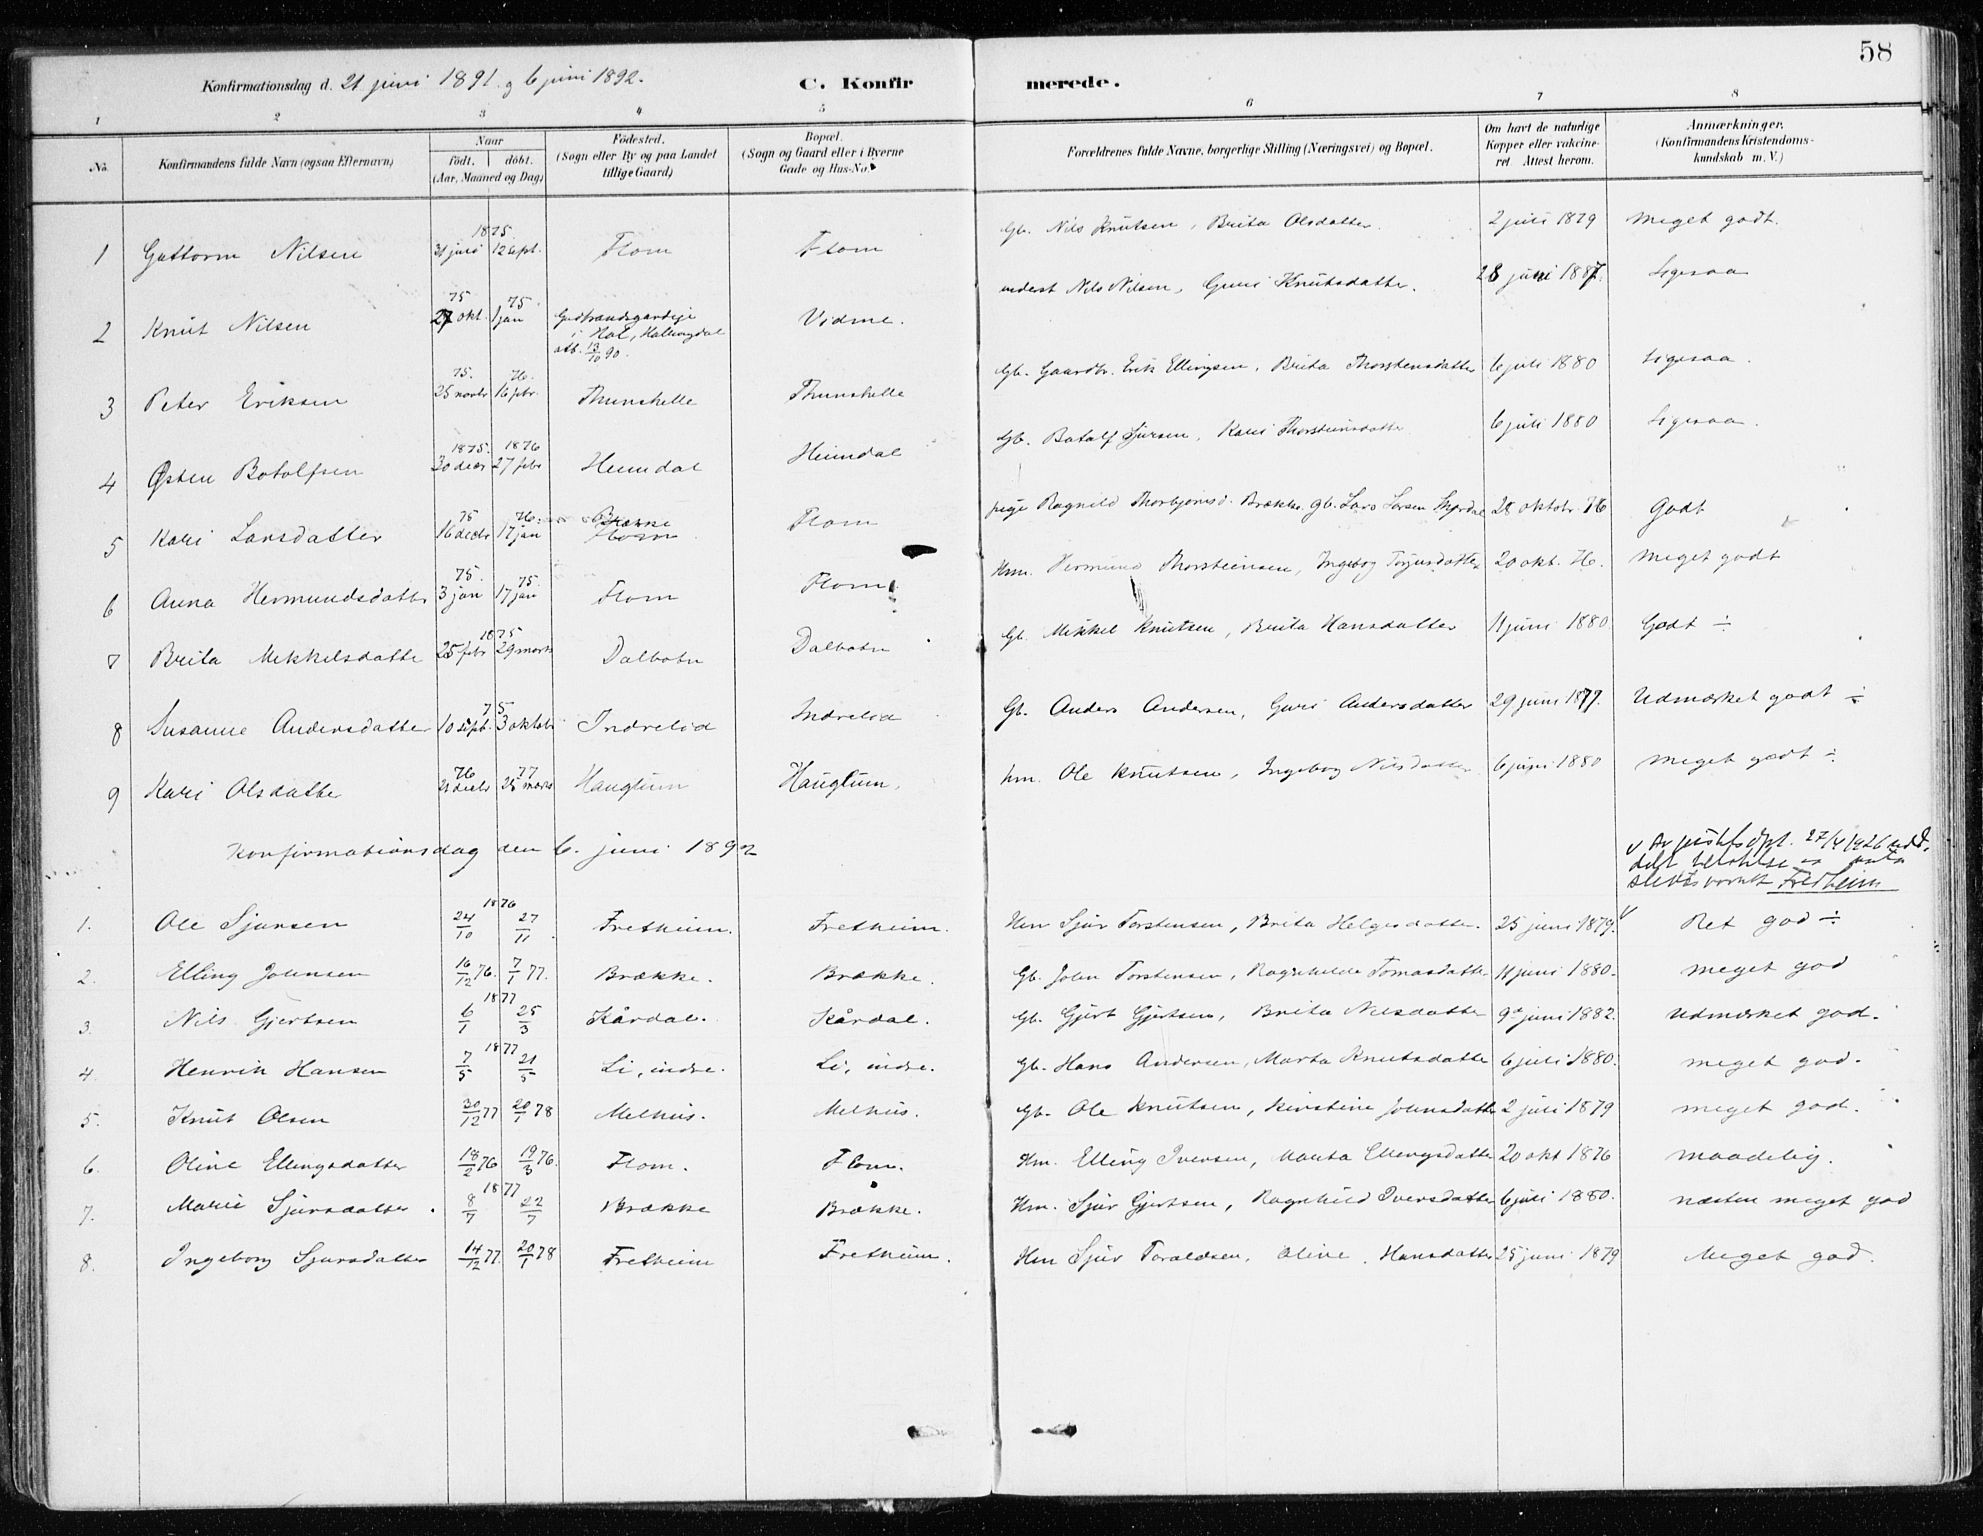 58
Konfirmationsdag d. 21 juni 1891. og 6 juni 1892.
C. Konfirmerede.
1 2 3 4 5 6 7 8
No. | Konfirmandens fulde Navn (ogsaa Efternavn) | Naar födt. döbt. (Aar, Maaned og Dag) | Födested. (Sogn eller By og paa Landet tillige Gaard) | Bopæl. (Sogn og Gaard eller i Byerne Gade og Hus-No.) | Forældrenes fulde Navne, borgerlige Stilling (Næringsvei) og Bopæl. | Om havt de naturlige Kopper eller vakcineret. Attest herom. | Anmærkninger. (Konfirmandens Kristendomskundskab m. V.)
1 Guttorm Nilsen | 1875. 31 juli 12 sept. | Flom | Flom | Gb. Nils Knutsen, Brita Olsdatter. | 2 juli 1879 | Meget godt.
2 Knut Nilsen | 75 27 okt. 75 1 jan | Gudbrandsgardije i Hol, Hallingdal att. 13/10 90. | Vidme. | inderst Nils Nilsen, Guri Knutsdatter. | 28 juni 1887. | Ligesaa
3 Peter Eriksen | 75. 25 novbr 76. 16 febr. | Thunshelle | Thunshelle | Gb. Gaardbr. Erik Ellingsen, Brita Thorstensdatter | 6 juli 1880 | Ligesaa.
4 Østen Botolfsen | 1875. 30 decbr 1876 27 febr | Heimdal | Heimdal | Gb. Botolf Sjursen, Kari Thorsteinsdatter | 6 juli 1880 | Ligesaa.
5 Kari Larsdatter | 75 16 decbr 76. 17 jan | Brække Flom | Flom | pige Ragnild Thorbjornsd. Brække, gb. Lars Larsen | 28 oktobr. 76 | Godt
6 Anna Hermundsdatter | 75. 3 jan 75. 17 jan | Flom | Flom | Hm. Hermund Thorsteinsen, Ingebog Torjusdatter | 20 okt. 76. | Meget godt
7 Brita Mikkelsdatter | 1875 25 febr 29 marts | Dalbotn | Dalbotn | Gb. Mikkel Knutsen, Brita Hansdatter | 11 juni 1880. | Godt ÷
8 Susanne Andersdatter | 75 10 sept. 3 oktobr | Indrelid | Indrelid | Gb. Anders Andersen, Guri Andersdatter | 29 juni 1877. | Udmærket godt ÷
9 Kari Olsdatter | 76 21 decbr 77 25 marts | Haugtun | Haugtun. | hm. Ole Knutsen, Ingebog Nilsdatter | 6 juni 1880 | Meget godt ÷
Konfirmationsdag den 6. juni 1892
v Av justitsdpt. 27/4 1926
Fretheim
1. Ole Sjursen | 1876 24/10 27/11 | Fretheim. | Fretheim. | Hm Sjur Torstensen, Brita Helgesdatter. | 25 juni 1879. | v Ret god ÷
2. Elling Johnsen | 16/12 76. 7/1 77. | Brække. | Brække. | Gb. John Torstensen, Ragnhilde Tomasdatter | 11 juni 1880. | meget god
3. Nils Gjertsen | 1877 6/1 25/3 | Kårdal. | Kårdal. | Gb. Gjert Gjertsen, Brita Nilsdatter | 9de juni 1882. | Udmærket god.
4. Henrik Hansen | 1877 7/5 21/5 | Li, indre. | Li, indre. | Gb. Hans Andersen, Marta Knutsdatter | 6 juli 1880. | meget god.
5. Knut Olsen | 30/12 77 20/1 78 | Melhus. | Melhus. | Gb. Ole Knutsen, Kirstine Johnsdatter | 2 juli 1879 | meget god.
6. Oline Ellingsdatter | 18/2 76 19/3 76. | Flom. | Flom. | Hm. Elling Iversen, Marita Ellingsdatter | 20 okt 1876 | maadelig.
7. Marie Sjursdatter. | 1877 8/7 22/7 | Brække | Brække. | Hm. Sjur Gjertsen, Ragnhild Iversdatter | 6 juli 1880. | næsten meget god
8. Ingeborg Sjursdatter | 14/12 77. 20/1 78 | Fretheim | Fretheim. | Hm Sjur Toraldsen, Oline Hansdatter | 25 juni 1879 | Meget god.